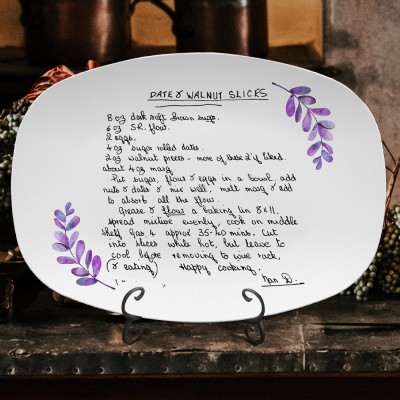 DATE & WALNUT SLICES
8 oz dark soft brown sugar.
6 oz S.R. flour.
2 eggs.
4 oz sugar rolled dates.
2 oz walnut pieces - more of these 2 if liked.
about 4 oz marg.
Put sugar, flour & eggs in a bowl, add
nuts & dates & mix well, melt marg & add
to absorb all the flour.
Grease & flour a baking tin 8 x 11,
spread mixture evenly, cook on middle
shelf Gas 4 approx 35-40 mins. Cut
into slices while hot, but leave to
cool before removing to wire rack,
(& eating) Happy cooking,
Nan D.